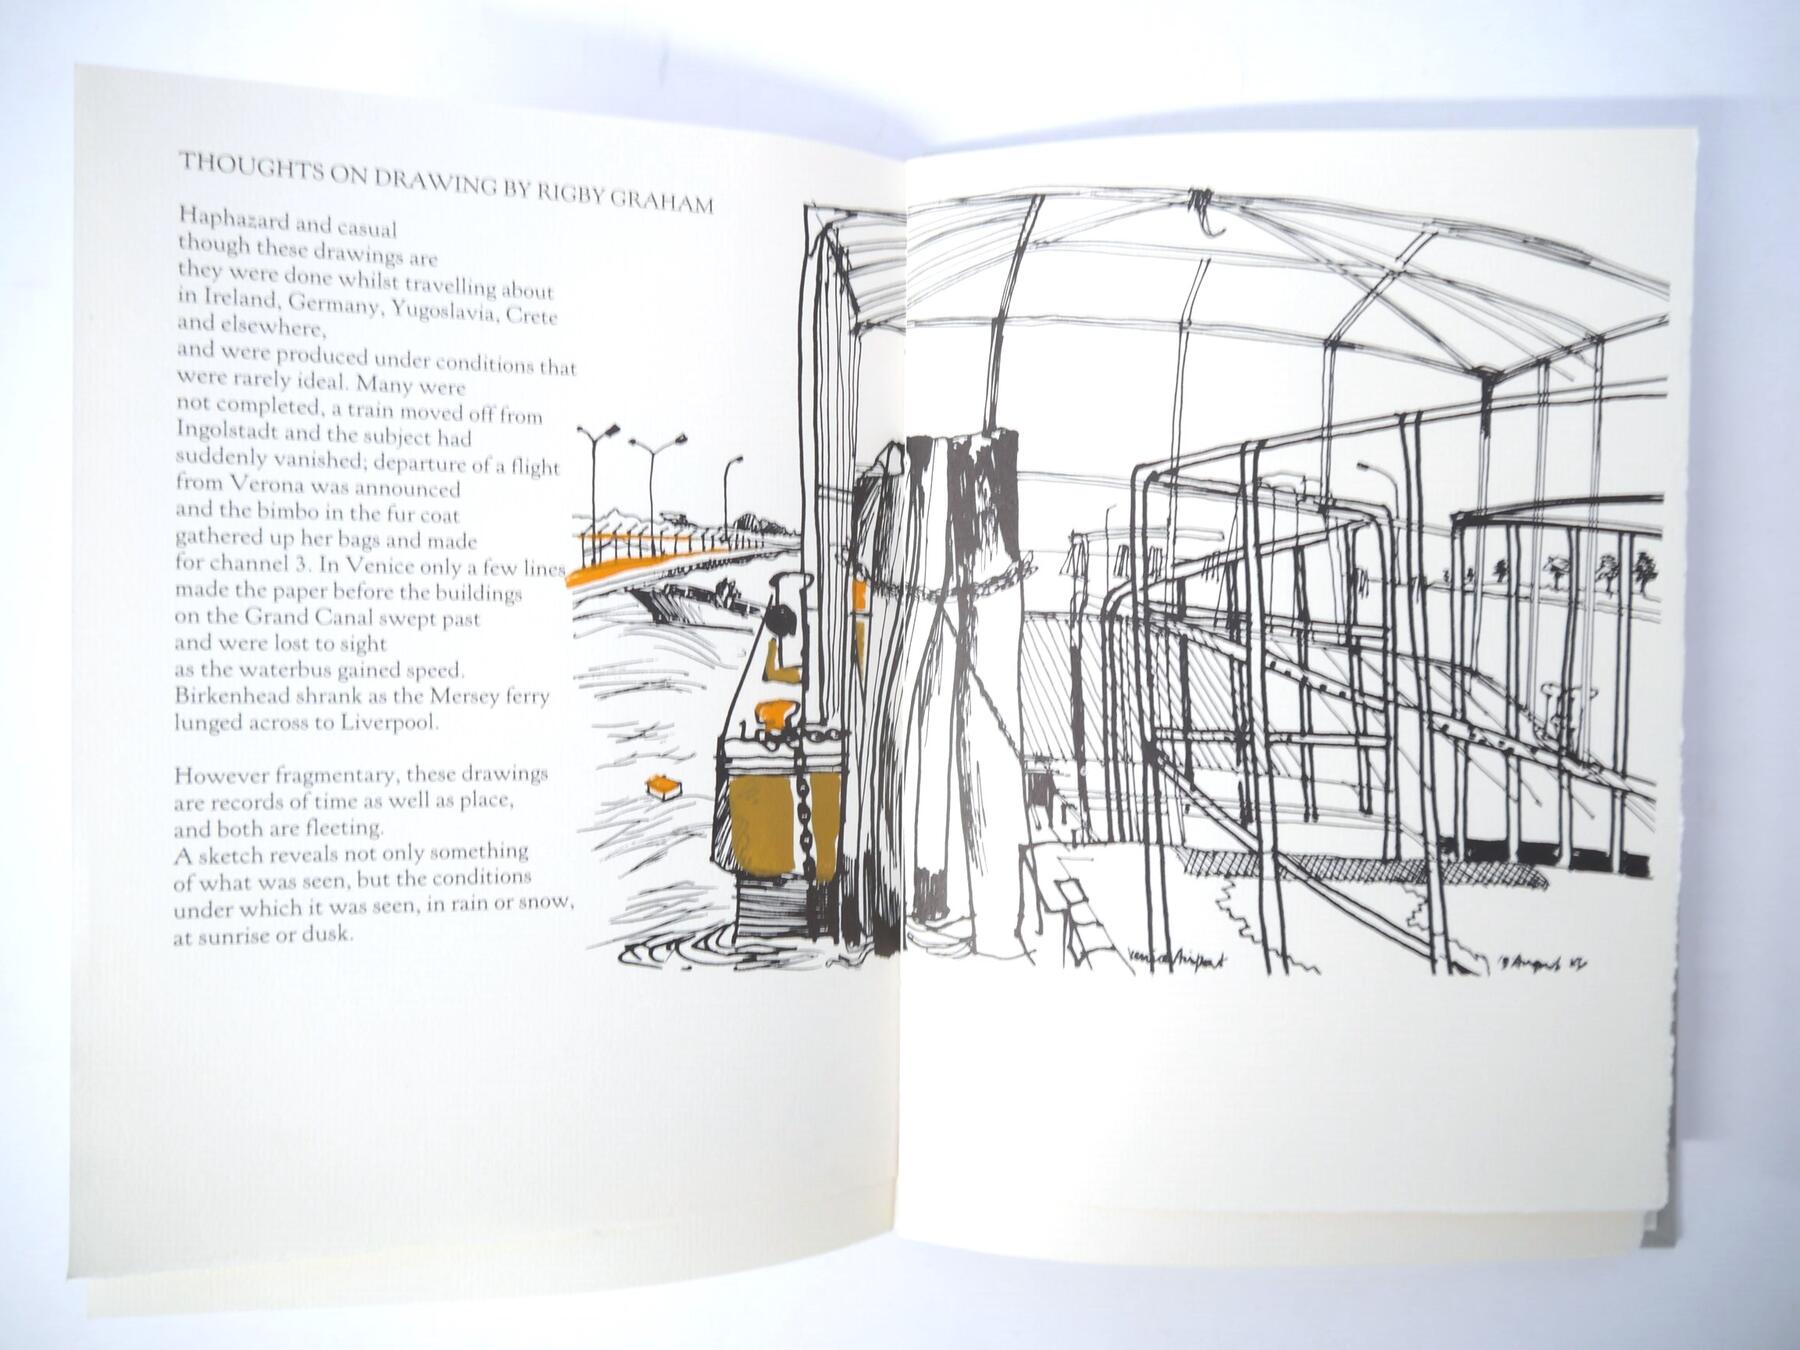 THOUGHTS ON DRAWING BY RIGBY GRAHAM
Haphazard and casual
though these drawings are
they were done whilst travelling about
in Ireland, Germany, Yugoslavia, Crete
and elsewhere,
and were produced under conditions that
were rarely ideal. Many were
not completed, a train moved off from
Ingolstadt and the subject had
suddenly vanished; departure of a flight
from Verona was announced
and the bimbo in the fur coat
gathered up her bags and made
for channel 3. In Venice only a few lines
made the paper before the buildings
on the Grand Canal swept past
and were lost to sight
as the waterbus gained speed.
Birkenhead shrank as the Mersey ferry
lunged across to Liverpool.
However fragmentary, these drawings
are records of time as well as place,
and both are fleeting.
A sketch reveals not only something
of what was seen, but the conditions
under which it was seen, in rain or snow,
at sunrise or dusk.
Venice Airport
August